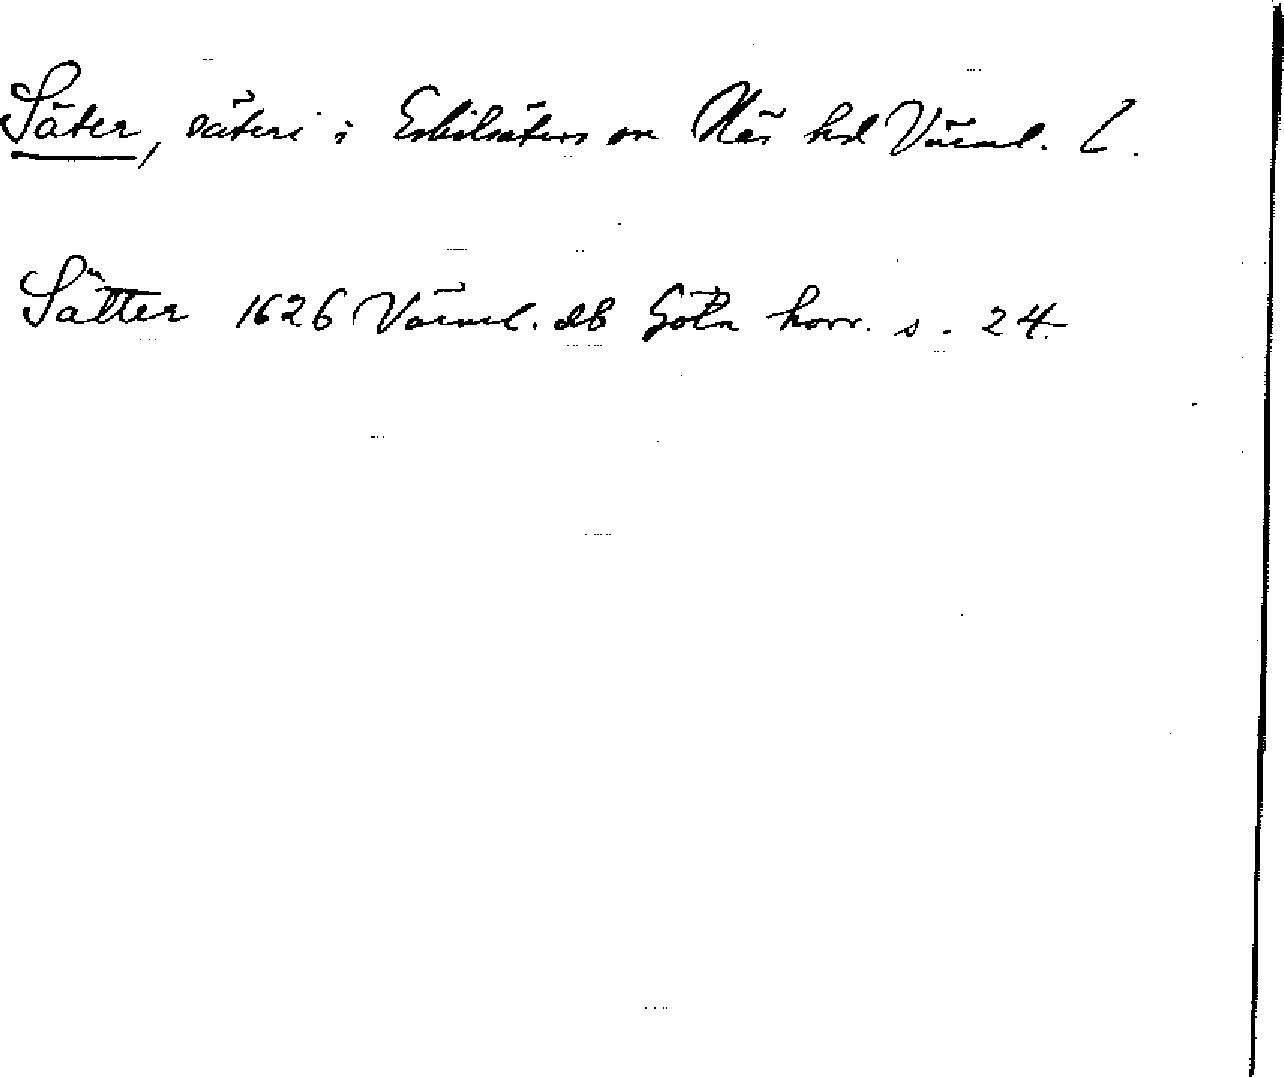 Säter, säteri i Eskilsäters sn Näs hd Värml. l.
Sätter 1626 Värml. db Göta hovr. s. 24.